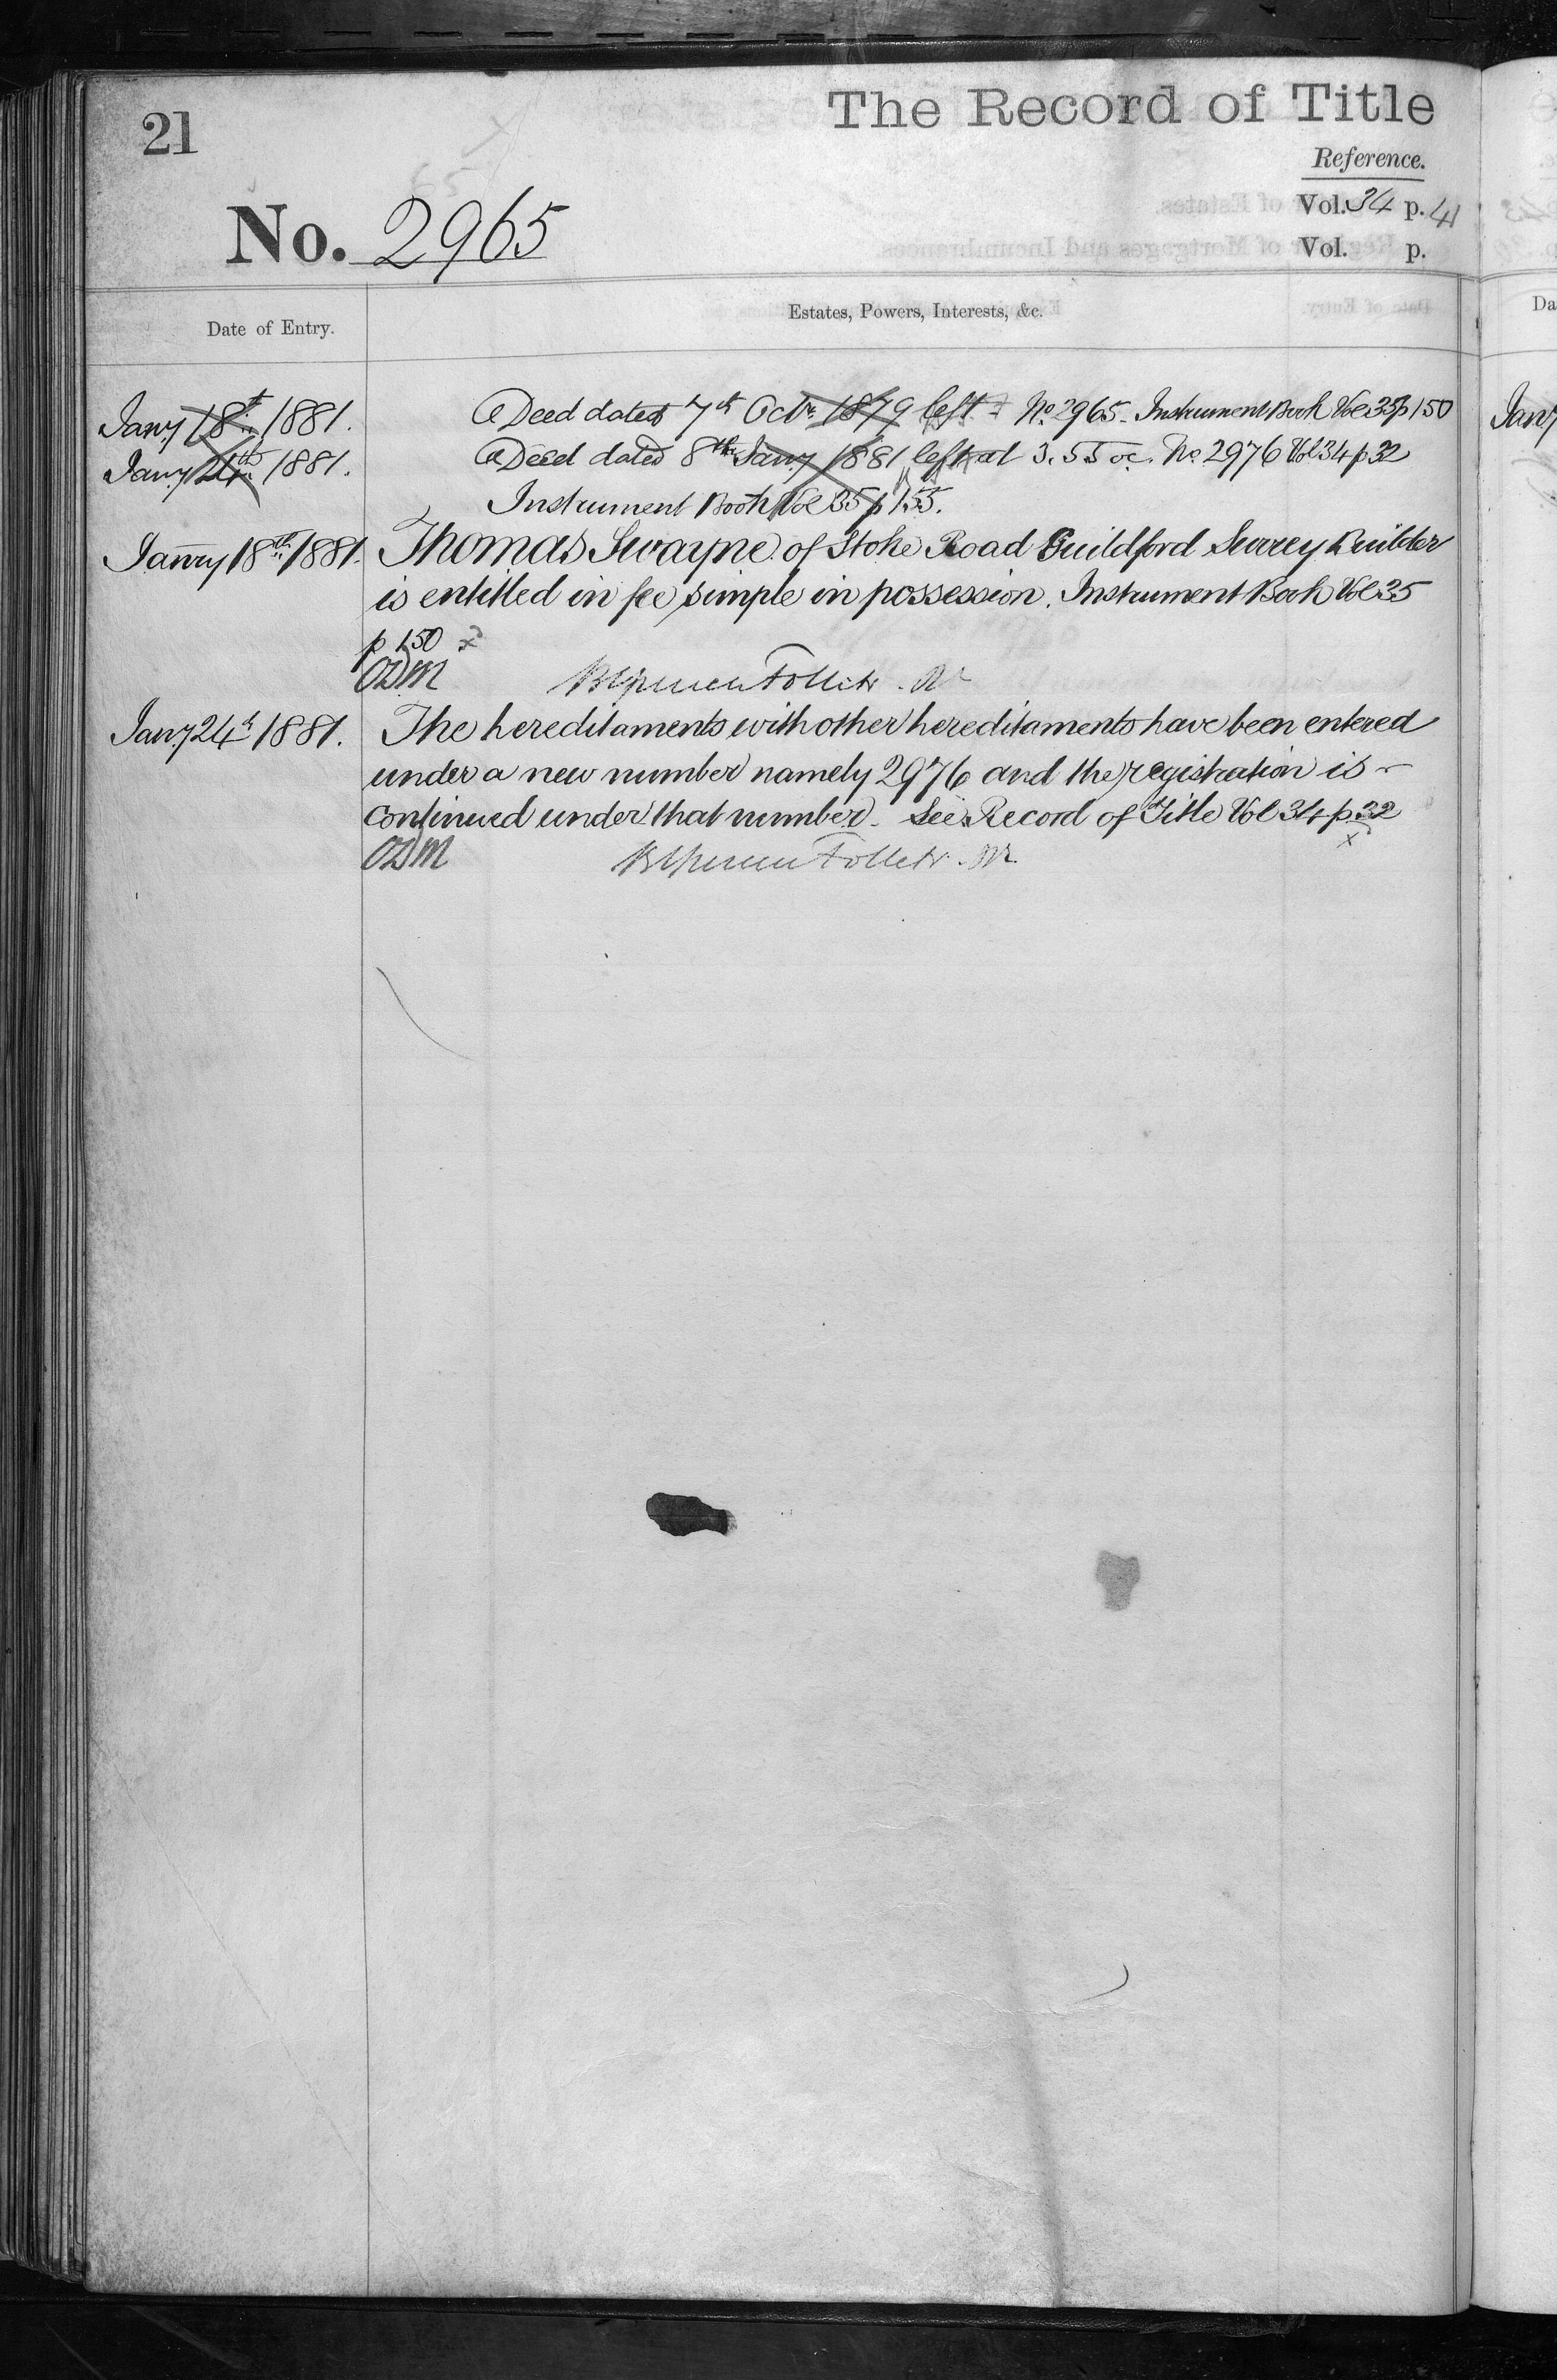 21
The Record of Title
Reference.
No. 2965
Vol. 34 p. 41
Vol. p.
Date of Entry.
Estates, Powers, Interests, &c.
Da
Jany 18th 1881. A Deed dated 7th Octr. 1879 left No. 2965. Instrument Book Vol 35 p 150
Jany
Jany 24th 1881. A Deed dated 8th Jany 1881 left at 3.55 oc. No. 2976 Vol 34 p 32
Instrument Book Vol 35 p 155.
Janry 18th 1881. Thomas Swayne of Stoke Road Guildford Surrey Builder
is entitled in fee simple in possession. Instrument Book Vol 35
p 150 x
ODM Follett
Jany 24th 1881. The hereditaments with other hereditaments have been entered
under a new number namely 2976 and the registration is
continued under that number. See Record of Title Vol 34 p 32
x
ODM Follett